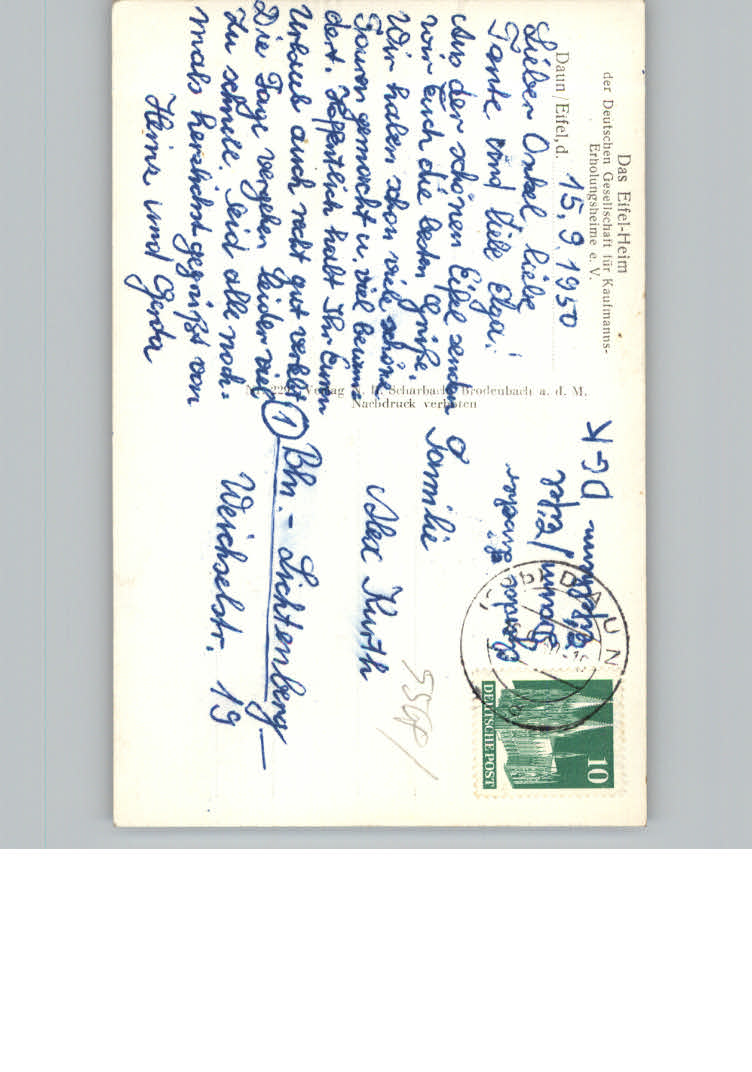 Das Eifel-Heim
der Deutschen Gesellschaft für Kaufmanns-
Erholungsheime e. V.
Daun/Eifel, d. 15.9.1950
Lieber Onkel, liebe
Tante und liebe Olga!
Aus der schönen Eifel senden
wir Euch die besten Grüße.
Wir haben schon viele schöne
Touren gemacht u. viel bewun-
dert. Hoffentlich habt Ihr Euren
Urlaub auch recht gut verlebt.
Die Tage vergehen leider viel
zu schnell. Seid alle noch-
mals herzlichst gegrüßt von
Heinz und Gerda
Verlag Scharbach, Brodenbach a. d. M.
Nachdruck verboten
Daun/Eifel
DAUN
10
DEUTSCHE POST
Familie
Alex Kurth
① Bln.-Lichtenberg
Weichselstr. 19